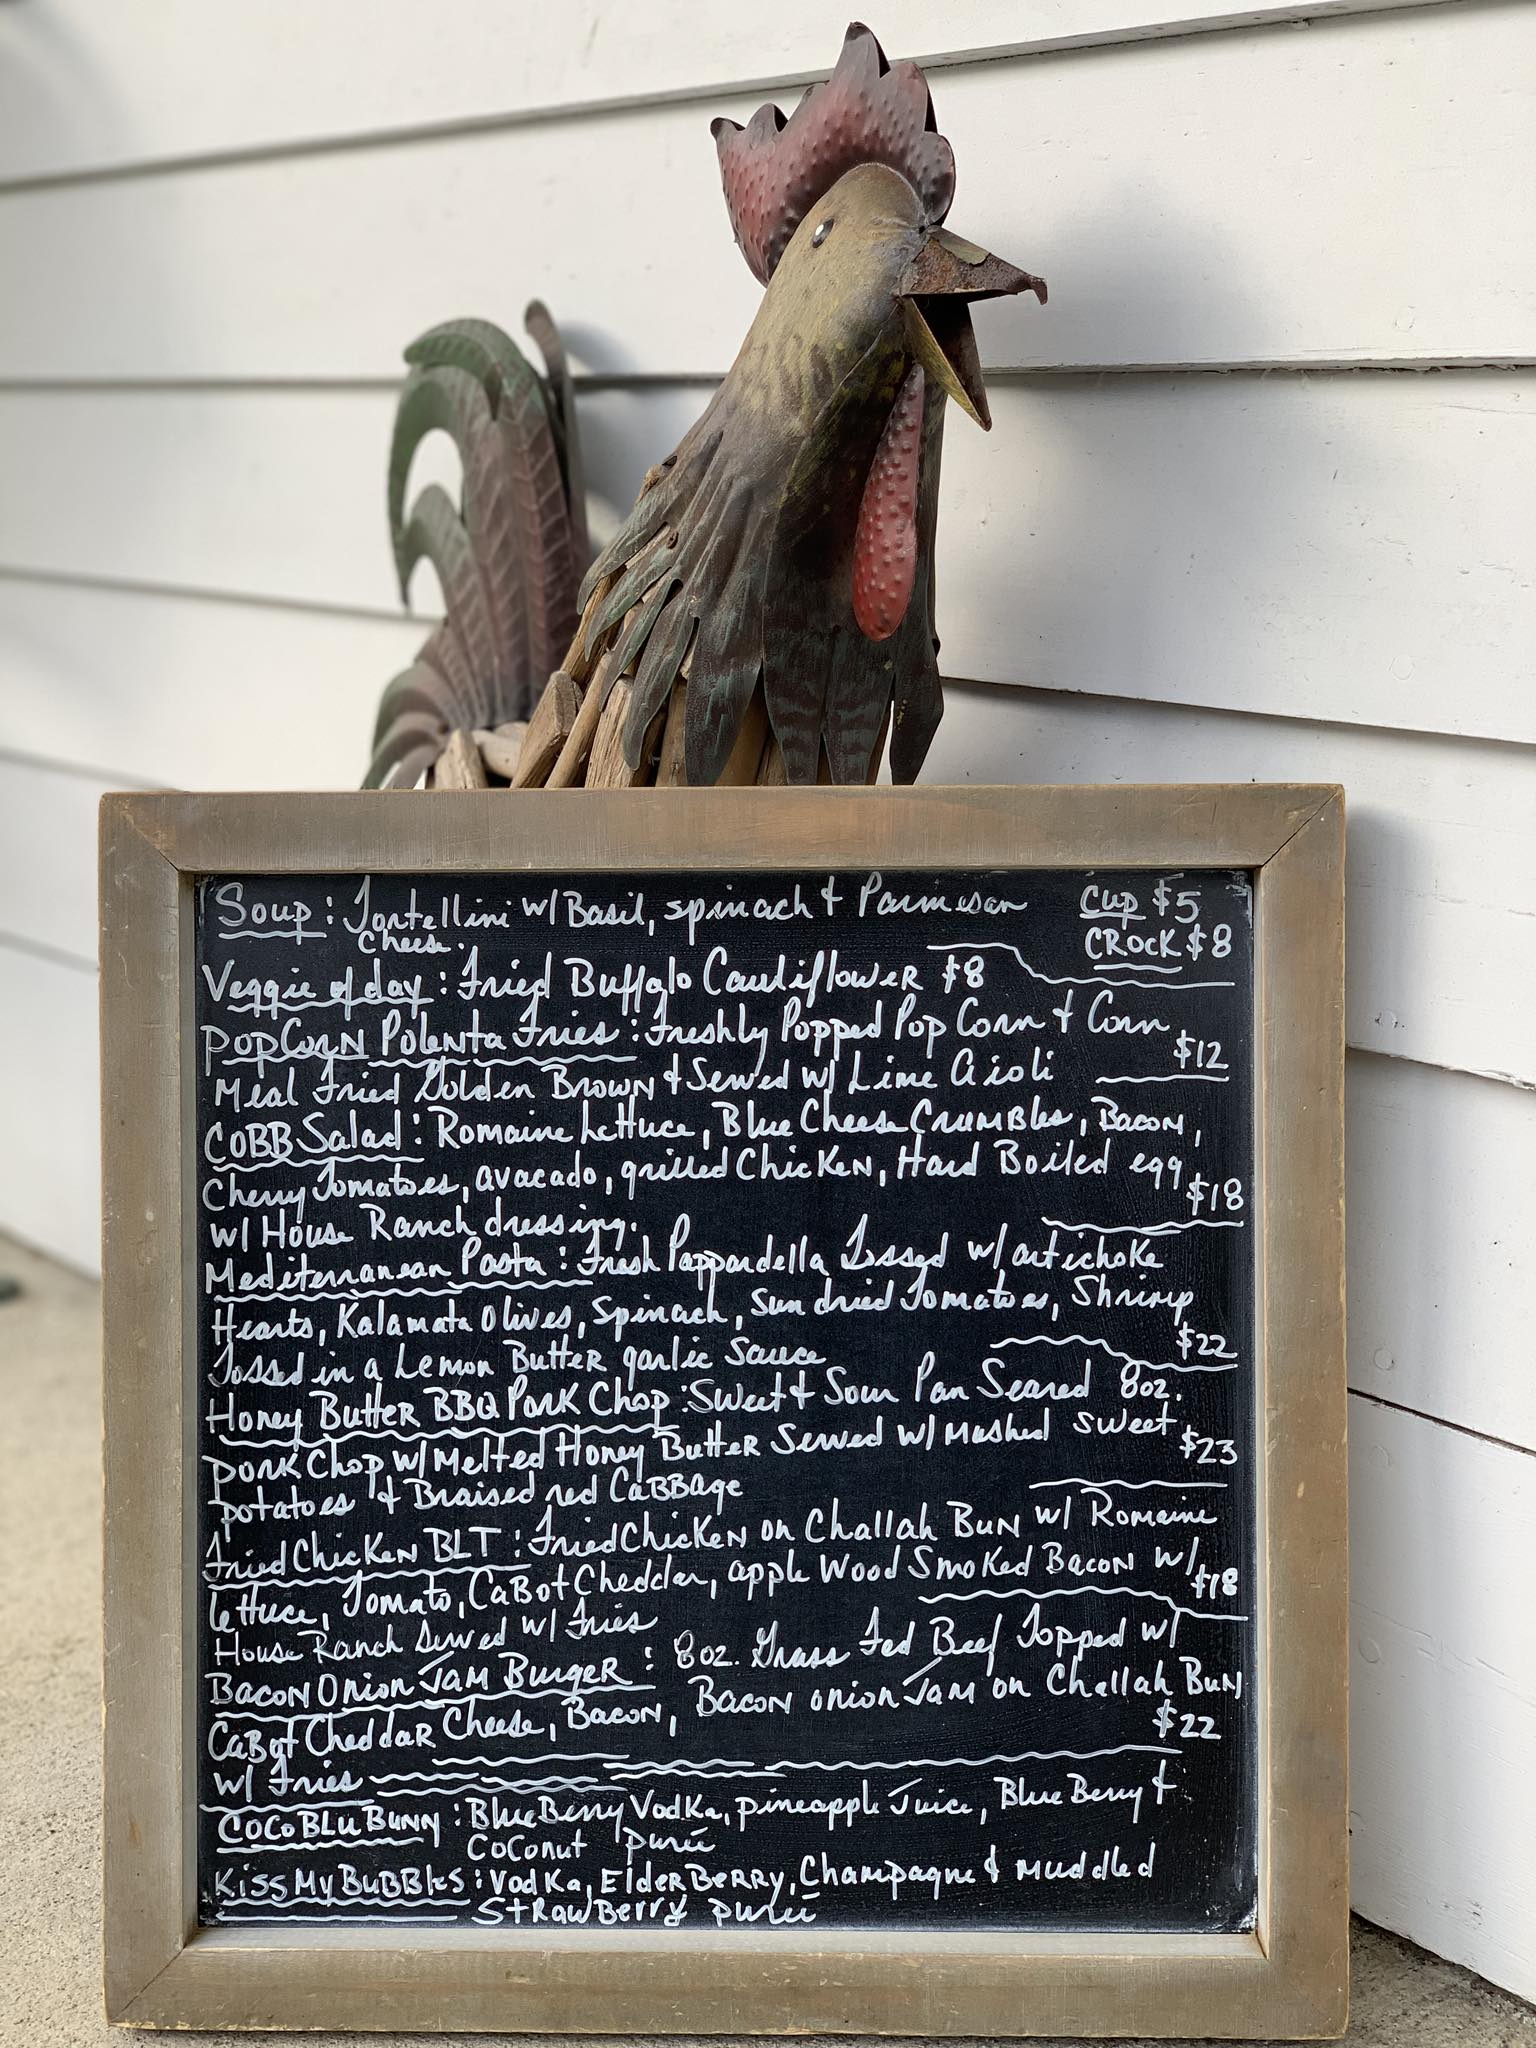 Soup: Tortellini w/Basil, spinach & Parmesan Cup $5
Cheese. CROCK $8
Veggie of day: Fried Buffalo Cauliflower $8
PopCorn Polenta Fries: Freshly Popped Pop Corn & Corn
Meal Fried Golden Brown & Served w/ Lime Aioli $12
COBB Salad: Romaine Lettuce, Blue Cheese Crumbles, Bacon,
Cherry Tomatoes, avacado, grilled Chicken, Hard Boiled egg
w/ House Ranch dressing. $18
Mediterranean Pasta: Fresh Pappardella Tossed w/ artichoke
Hearts, Kalamata Olives, Spinach, Sun dried Tomatoes, Shrimp
Tossed in a Lemon Butter garlic Sauce $22
Honey Butter BBQ Pork Chop: Sweet & Sour Pan Seared 8oz.
pork Chop w/ Melted Honey Butter Served w/ Mashed sweet
potatoes & Braised red Cabbage $23
Fried Chicken BLT: Fried Chicken on Challah Bun w/ Romaine
lettuce, Tomato, Cabot Cheddar, apple Wood Smoked Bacon w/
House Ranch Served w/ Fries $18
Bacon Onion Jam Burger: 8oz. Grass Fed Beef Topped w/
Cabot Cheddar Cheese, Bacon, Bacon onion Jam on Challah Bun
w/ Fries $22
COCO BLU Bunny: BlueBerry Vodka, pineapple Juice, Blue Berry &
Coconut purée
Kiss My Bubbles: Vodka, ElderBerry, Champagne & muddled
Strawberry purée